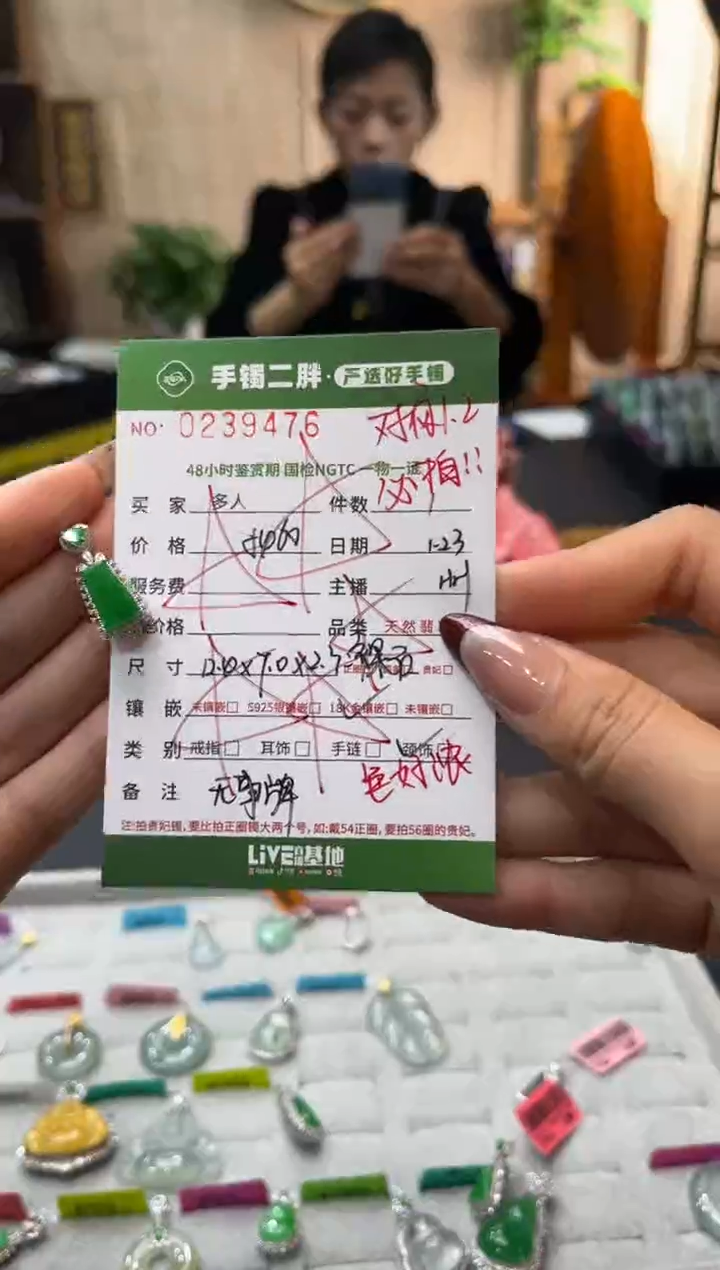 手镯二胖·严选好手镯
NO: 0239476
对梢1.2
48小时鉴赏期 国检NGTC 一物一证
必拍!!
买 家 多人 件数
价 格 日期 1.23
服务费 主播
价格 品类 天然翡
尺 寸 12.0×7.0×2.5裸石 贵妃□
镶 嵌 未镶嵌□ S925银镶嵌□ 18K金镶嵌□ 未镶嵌□
类 别 戒指□ 耳饰□ 手链□ 颈饰
色好浓
备 注 无事牌
注:拍贵妃镯,要比拍正圈镯大两个号,如:戴54正圈,要拍56圈的贵妃。
LiVE 基地